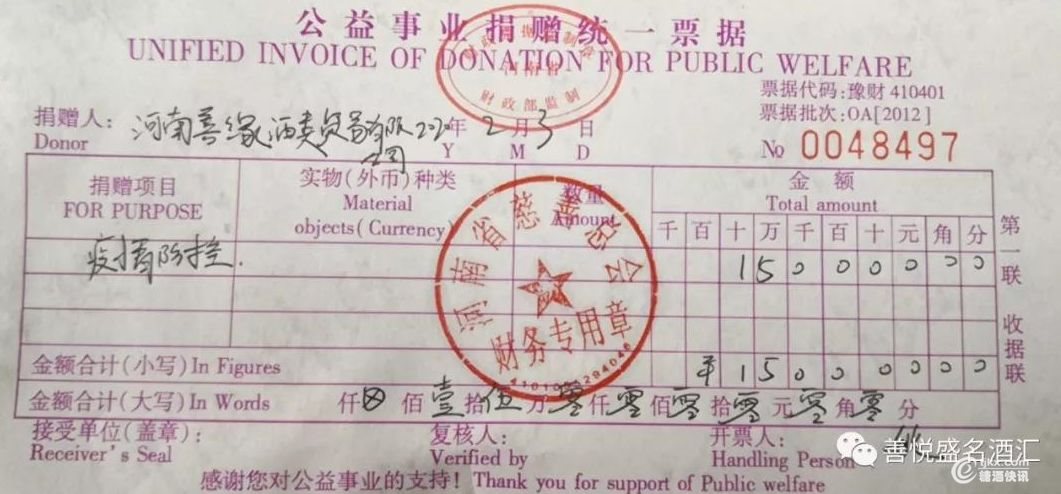 公益事业捐赠统一票据
UNIFIED INVOICE OF DONATION FOR PUBLIC WELFARE
财政部监制
河南省
票据代码:豫财 410401
票据批次:OA[2012]
№ 0048497
捐赠人: 河南善缘酒类贸易有限公司 2020年 2月 3日
Donor Y M D
捐赠项目 实物(外币)种类 数量 金额
FOR PURPOSE Material Amount Total amount
objects(Currency) 千 百 十 万 千 百 十 元 角 分
疫情防控. 1 5 0 0 0 0 0 0
金额合计(小写)In Figures ¥ 1 5 0 0 0 0 0 0
金额合计(大写)In Words 仟 佰 壹 拾 伍 万 零 仟 零 佰 零 拾 零 元 零 角 零 分
接受单位(盖章): 复核人: 开票人:
Receiver's Seal Verified by Handling Person
感谢您对公益事业的支持! Thank you for support of Public welfare
第一联 收据联
河南省慈善总会
财务专用章
善悦盛名酒汇
糖酒快讯